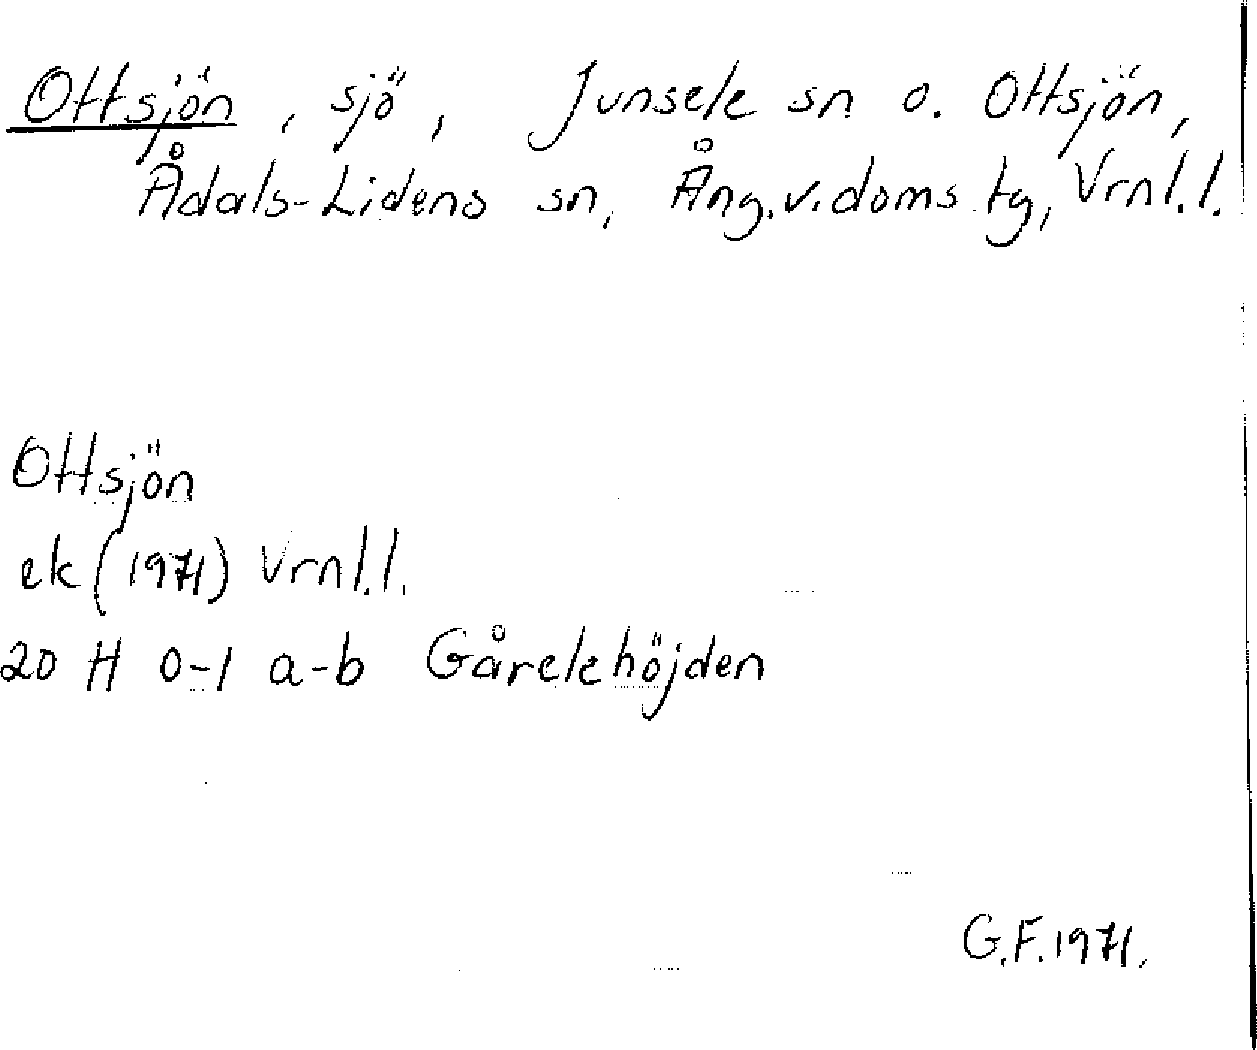 Ottsjön, sjö, Junsele sn o. Ottsjön,
Ådals-Lidens sn, Ång.v.doms.tg, Vrnl.l.
Ottsjön
ek (1971) Vrnl.l.
20 H 0-1 a-b Gårelehöjden
G.F.1971.